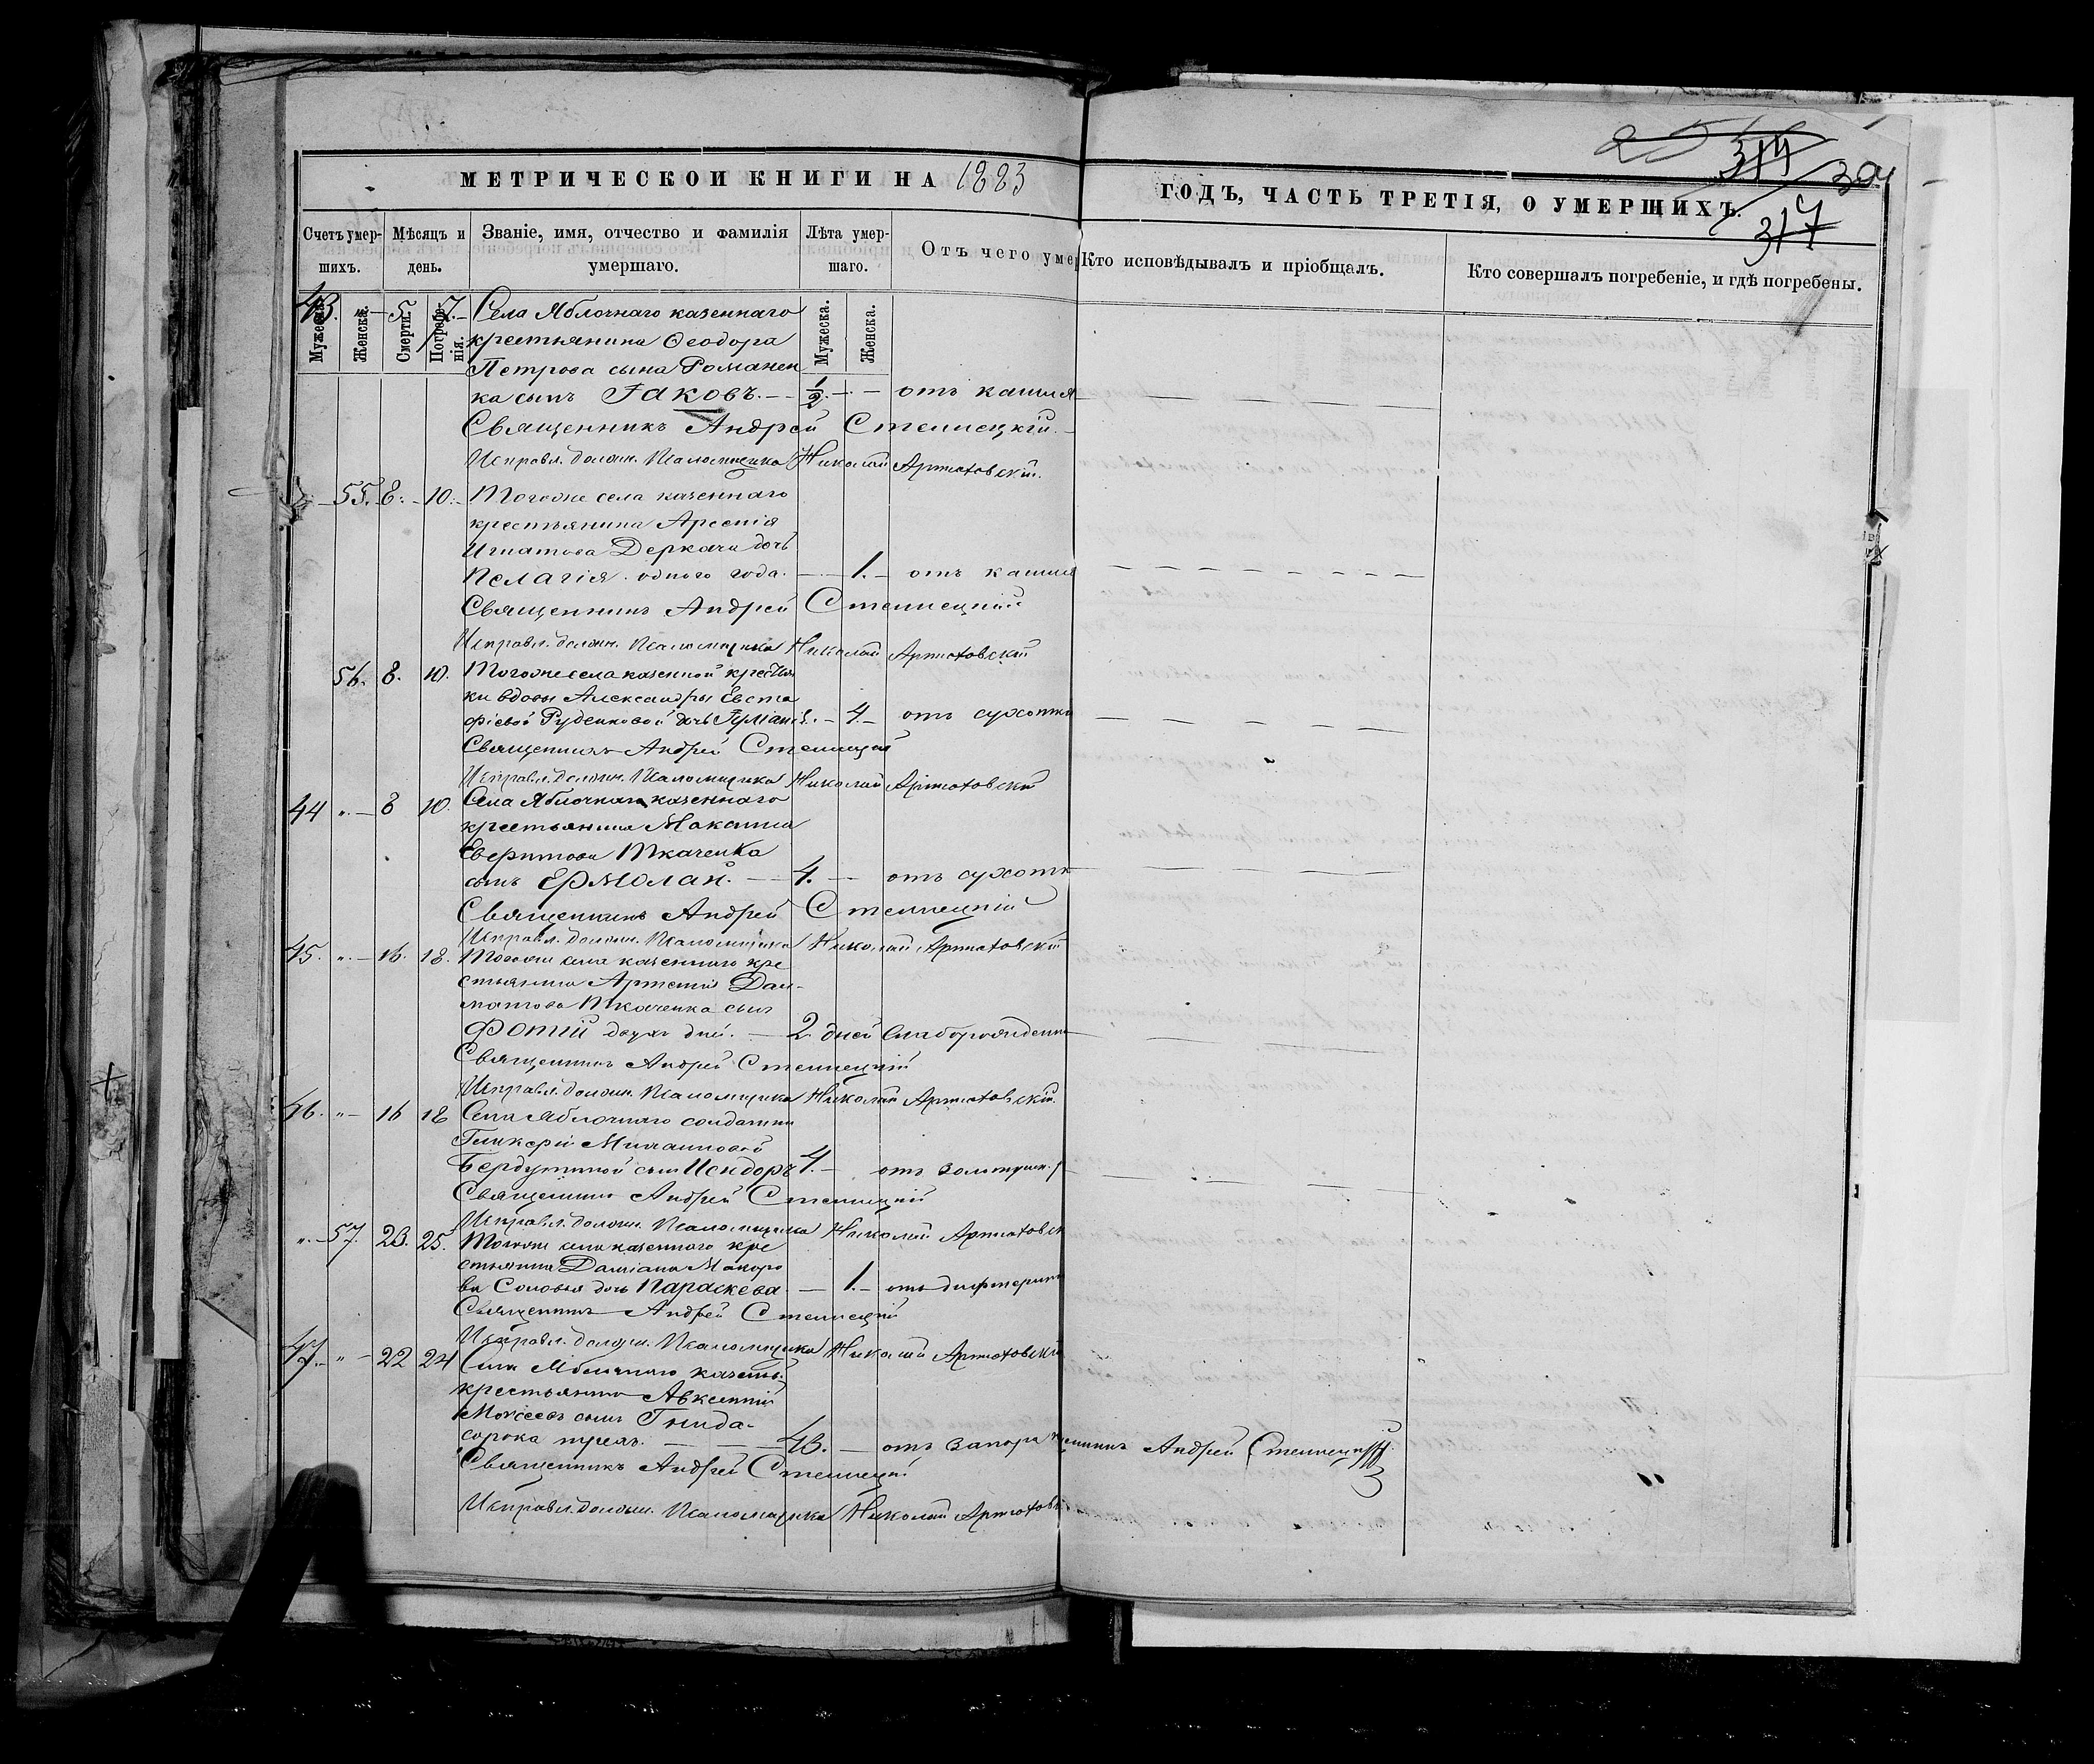 МЕТРИЧЕСКОЙ КНИГИ НА 1883
ГОДЪ, ЧАСТЬ ТРЕТІЯ, О УМЕРШИХЪ.
317
Счетъ умер-
шихъ.
Мѣсяцъ и
день.
Званіе, имя, отчество и фамилія
умершаго.
Лѣта умер-
шаго.
Отъ чего уме
Кто исповѣдывалъ и пріобщалъ.
Кто совершалъ погребеніе, и гдѣ погребены.
Мужеска.
Женска.
Смерти.
Погребе-
нія.
Мужеска.
Женска.
43. 5. 7. Села Яблочнаго казеннаго
крестьянина Ѳеодора
Петрова сына Романен
ка сынъ Іаковъ. — 1/2 — отъ кашля
Священникъ Андрей Стеллецкій.
Исправл. должн. Псаломщика Николай Артюховскій.
55. 8. 10. Тогоже села казеннаго
крестьянина Арсенія
Игнатова Деркача дочь
Пелагія одного года. — 1. — отъ кашля
Священникъ Андрей Стеллецкій
Исправл. должн. Псаломщика Николай Артюховскій
56. 8. 10. Тогоже села казенной крестьян
ки вдовы Александры Евста
фіевой Руденковой дочь Іуліанія. — 4. — отъ сухотки
Священникъ Андрей Стеллецкій
Исправл. должн. Псаломщика Николай Артюховскій
44 „ — 8 10. Села Яблочнаго казеннаго
крестьянина Максима
Ткаченка
сынъ Ермолай. — 4. — отъ сухотк
Священникъ Андрей Стеллецкій
Исправл. должн. Псаломщика Николай Артюховскій
45. „ — 16. 18. Тогоже села казеннаго кре
стьянина Артемія Дал-
матова Ткаченка сынъ
Фотій двухъ дней. — 2 дней Слаборожденно
Священникъ Андрей Стеллецкій
Исправл. должн. Псаломщика Николай Артюховскій.
46. „ — 16 18 Села Яблочнаго солдатки
Гликеріи
сынъ Исидоръ 4. — отъ золотушн.
Священникъ Андрей Стеллецкій
Исправл. должн. Псаломщика Николай Артюховск
„ — 57. 23. 25. Тогоже села казеннаго кре
стьянина Даміана Макаро
ва Соловья дочь Параскева. — 1. — отъ дифтерита
Священникъ Андрей Стеллецкій
Исправл. должн. Псаломщика Николай Артюховскій
47. „ — 22 24 Села Яблочнаго казенн.
крестьянинъ Авксентій
Моисеевъ сынъ Гнида-
сорока трехъ. — 43. — отъ запора Андрей Стеллецкій
Священникъ Андрей Стеллецкій
Исправл. должн. Псаломщика Николай Артюховс